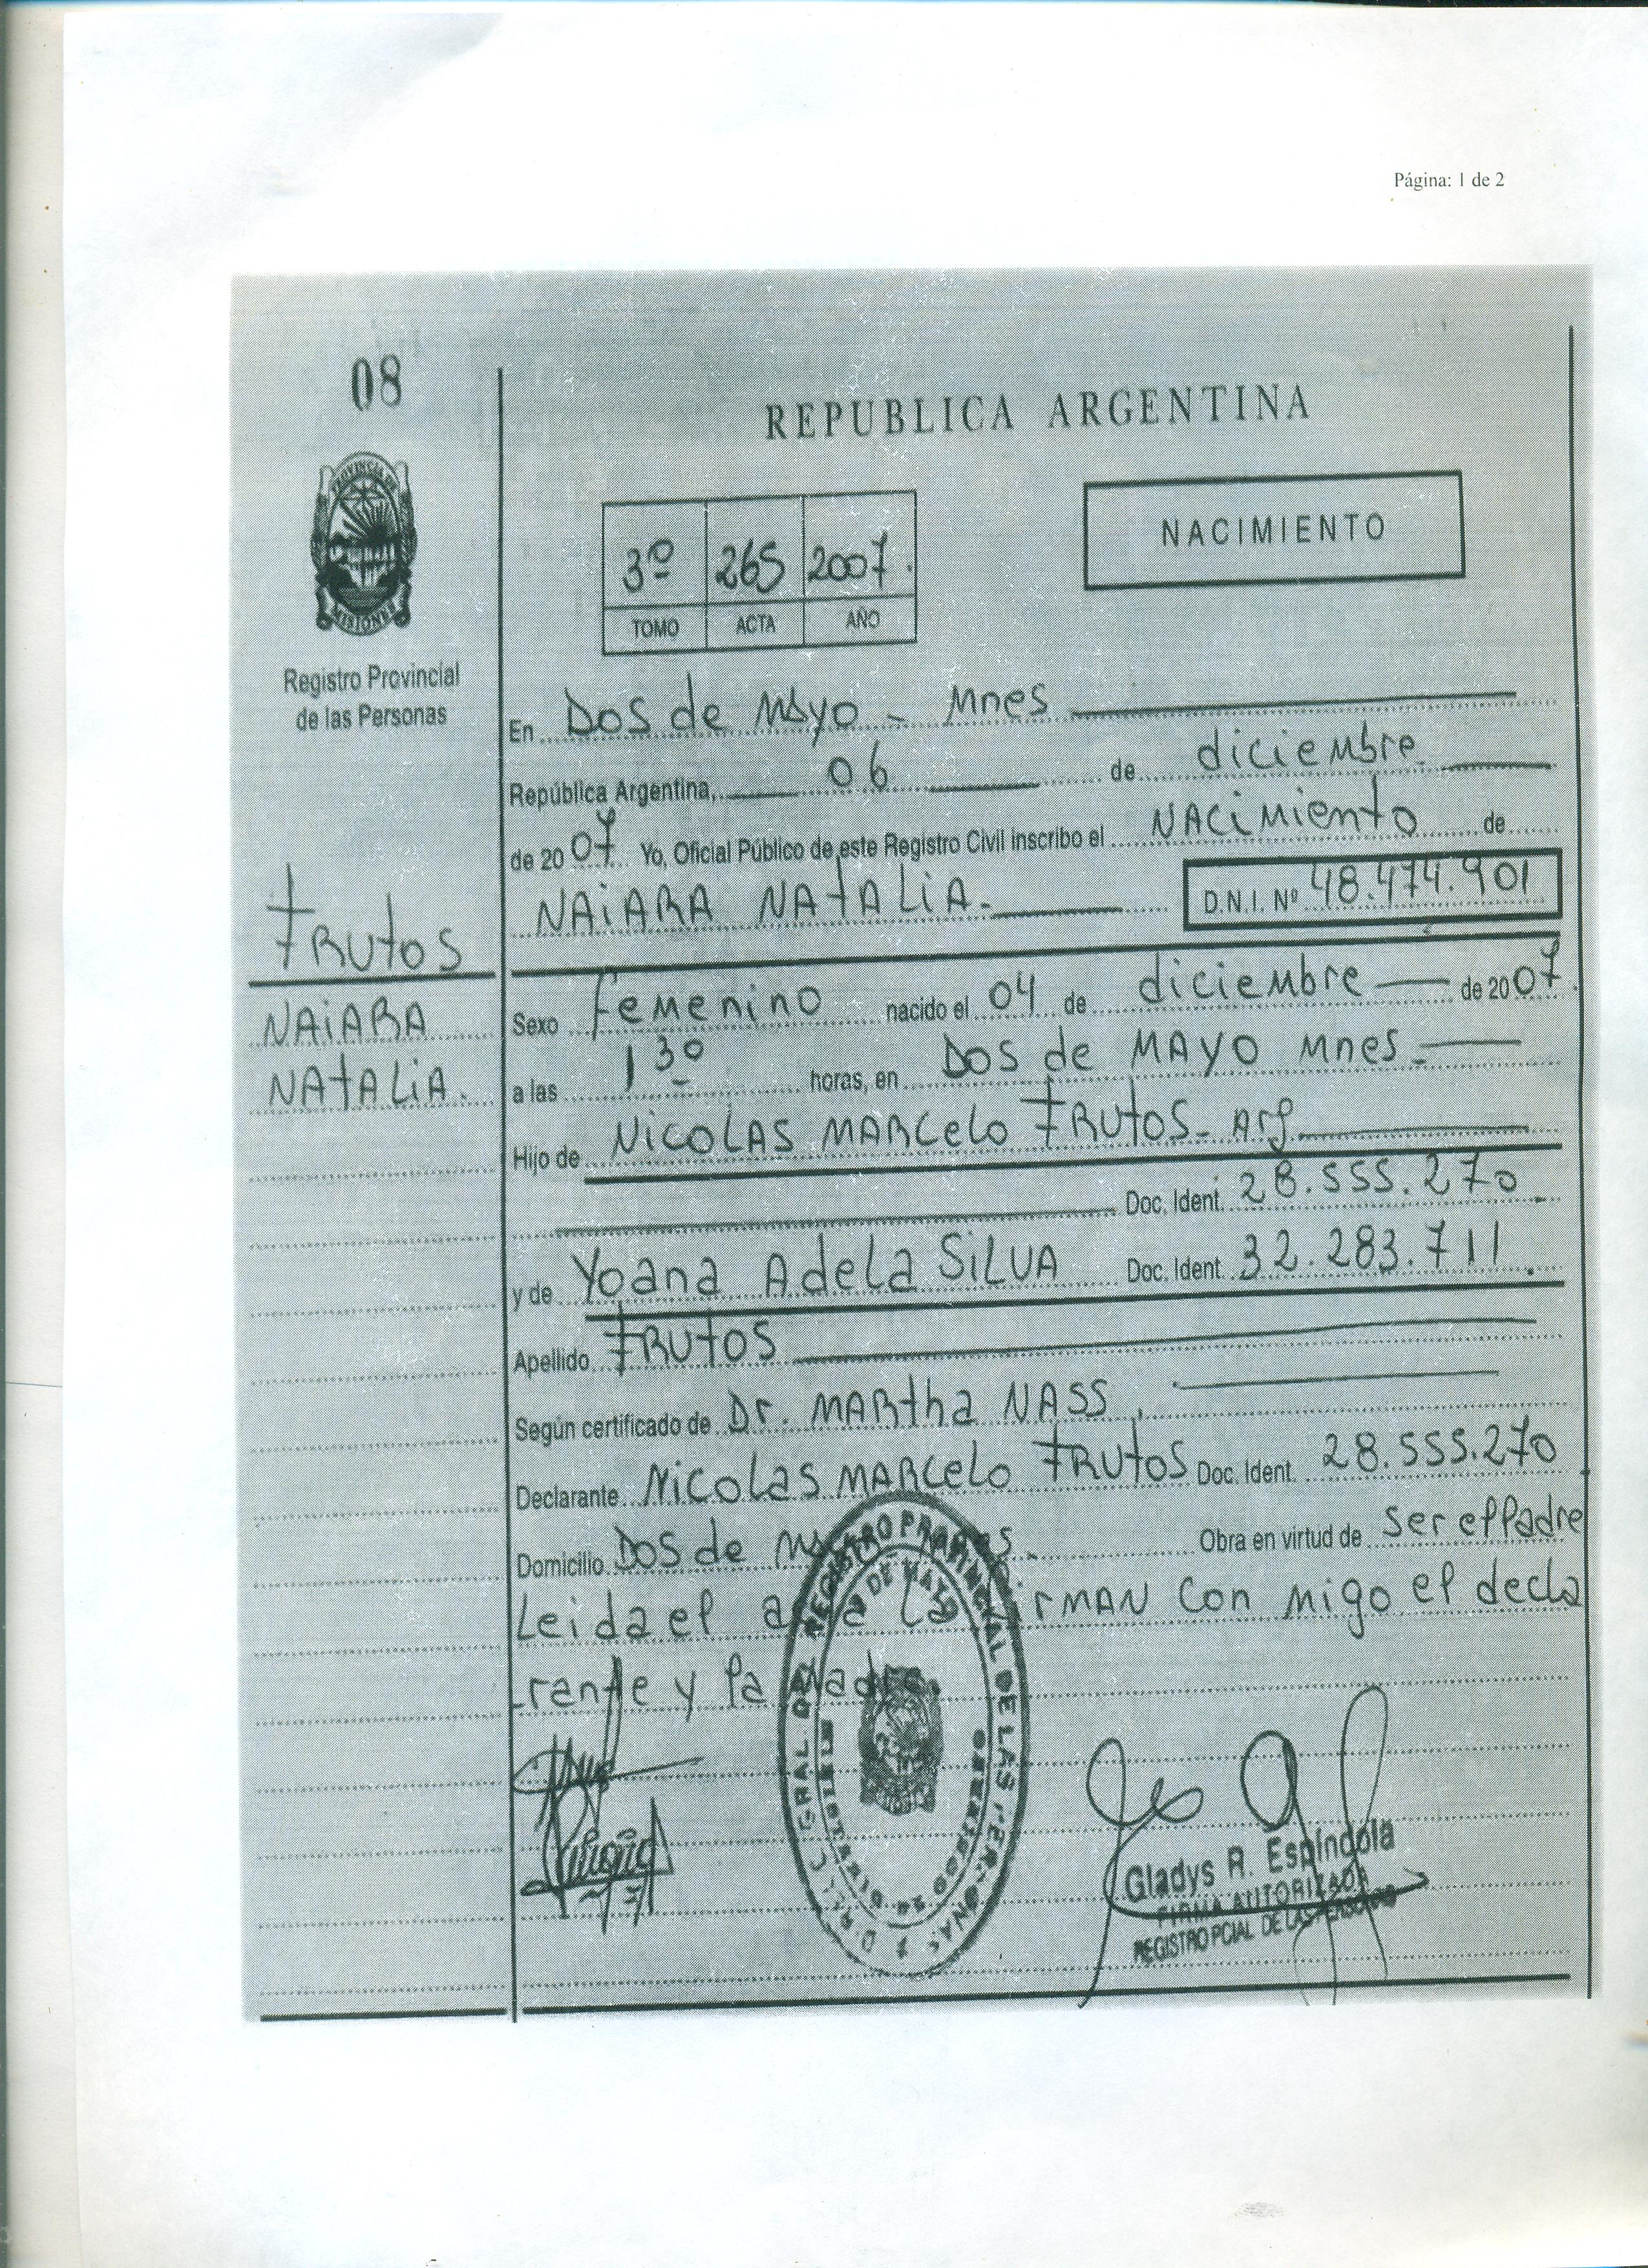 Página: 1 de 2
08
REPUBLICA ARGENTINA
PROVINCIA DE
MISIONES
Registro Provincial
de las Personas
3º 265 2007.
TOMO ACTA AÑO
NACIMIENTO
En Dos de Mayo - Mnes
República Argentina, 06 de diciembre
de 2007 Yo, Oficial Público de este Registro Civil inscribo el NACIMIENTO de
NAIARA NATALIA.- D.N.I. Nº 48.474.901
FRUTOS
NAIARA
NATALIA.
Sexo femenino nacido el 04 de diciembre de 2007
a las 13º horas, en Dos de MAYO Mnes.-
Hijo de NICOLAS MARCELO FRUTOS- Arg
Doc. Ident. 28.555.270
y de Yoana Adela SILVA Doc. Ident. 32.283.711
Apellido FRUTOS
Según certificado de Dr. MARtha NASS.
Declarante NICOLAS MARCELO FRUTOS Doc. Ident. 28.555.270
Domicilio Dos de Obra en virtud de ser el Padre
Leida el la con migo el decla
rante y la Madre.
REGISTRO PROVINCIAL DE LAS PERSONAS
DE MAYO
Gladys R. Espíndola
FIRMA AUTORIZADA
REGISTRO PCIAL DE LAS PERSONAS